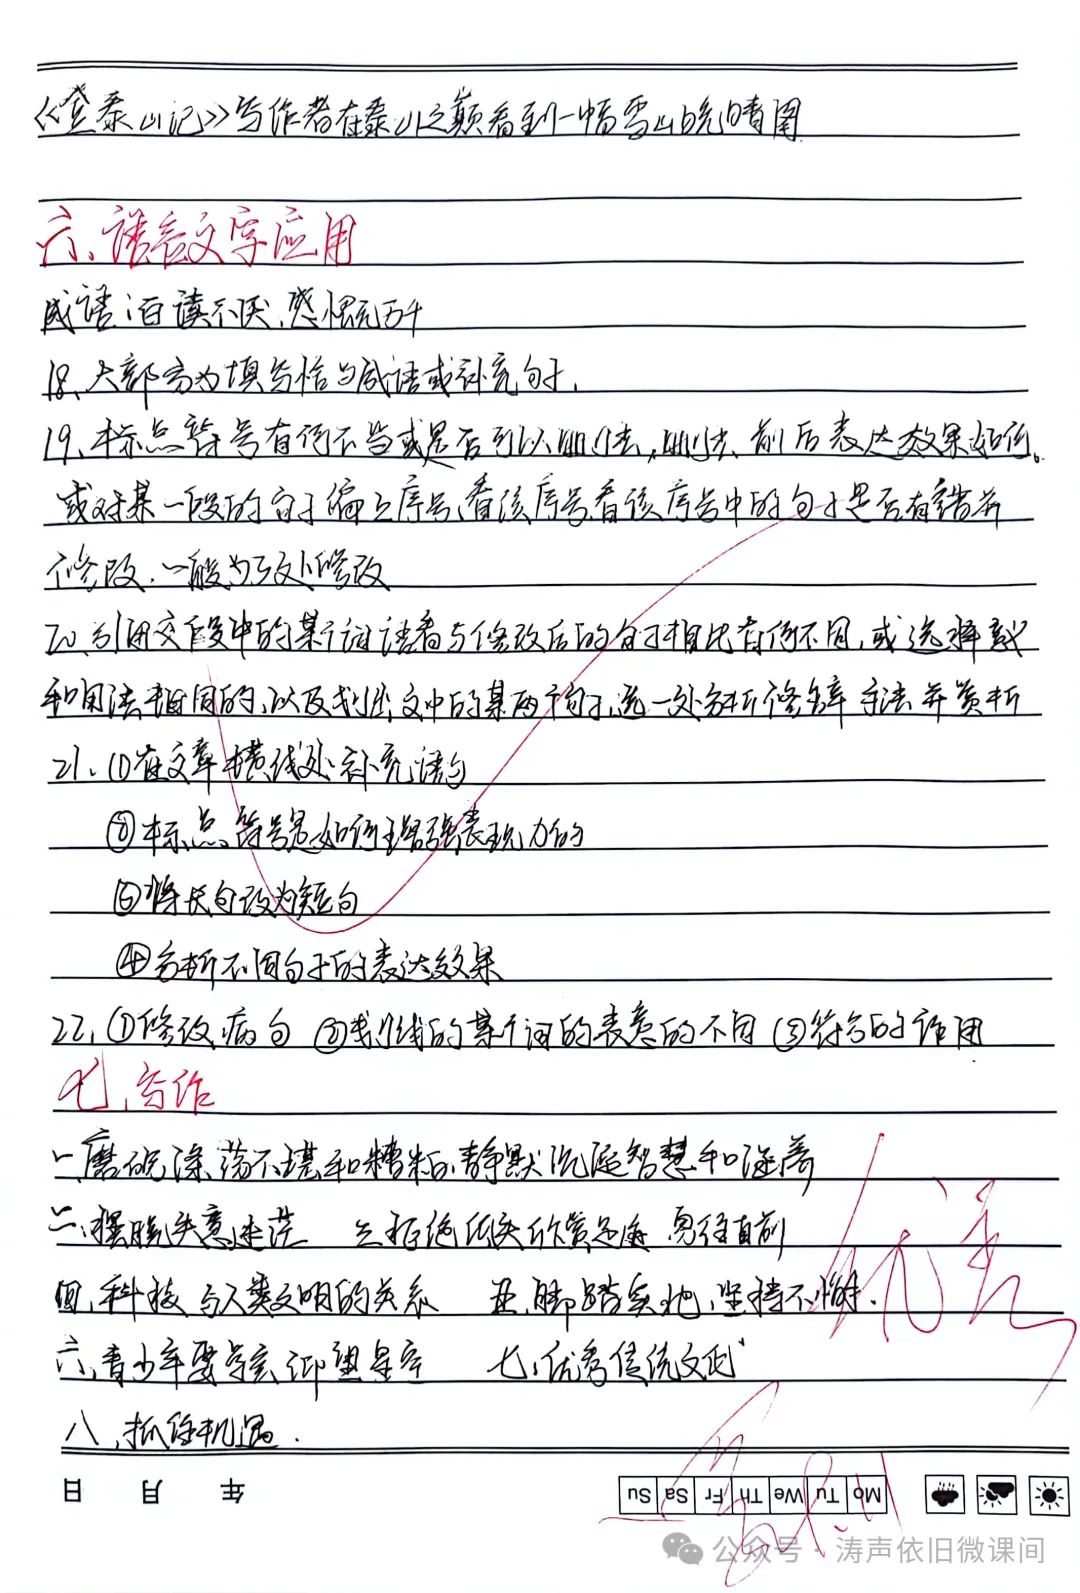 《登泰山记》写作者在泰山之巅看到一幅雪山晚晴图
六、语言文字应用
成语：百读不厌、感慨万千
18、大部分为填写恰当成语或补充句子.
19、标点符号有何不当或是否可以删去,删去前后表达效果如何。
或对某一段的句子偏上序号、看该序号看该序号中的句子是否有错并
修改.一般为3处修改
20、引用文段中的某个词语看与修改后的句子相比有何不同,或选择
和用法相同的,以及划出文中的某两个句子,选一处分析修辞手法并赏析
21、①在文章横线处补充语句
②标点符号是如何增强表现力的
③将长句改为短句
④分析不同句子的表达效果
22、①修改病句 ②划线的某个词的表意的不同 ③符号的作用
七、写作
一、磨砺深 不堪和糟粕,静默沉淀智慧和涵养
二、摆脱失意迷茫 三、拒绝 勇往直前
四、科技与人类文明的关系 五、脚踏实地,坚持不懈.
六、青少年要学会仰望星空 七、优秀传统文化
八、抓住机遇.
优秀
日 月 年
Mo Tu We Th Fr Sa Su
公众号·涛声依旧微课间